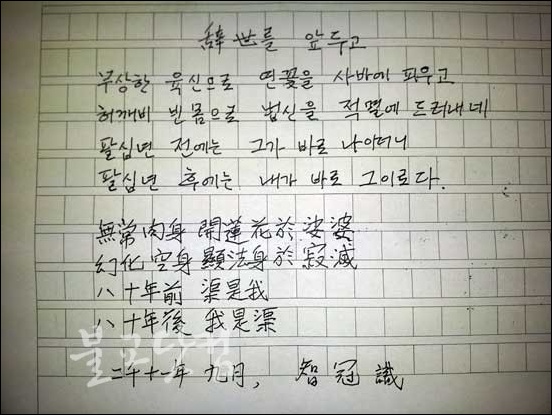 辭世를 앞두고
무상한 육신으로 연꽃을 사바에 피우고
허깨비 빈몸으로 법신을 적멸에 드러내네
팔십년 전에는 그가 바로 나이더니
팔십년 후에는 내가 바로 그이로다.
無常肉身 開蓮花於娑婆
幻化空身 顯法身於寂滅
八十年前 渠是我
八十年後 我是渠
불교닷컴
二千十一年 九月, 智冠 識